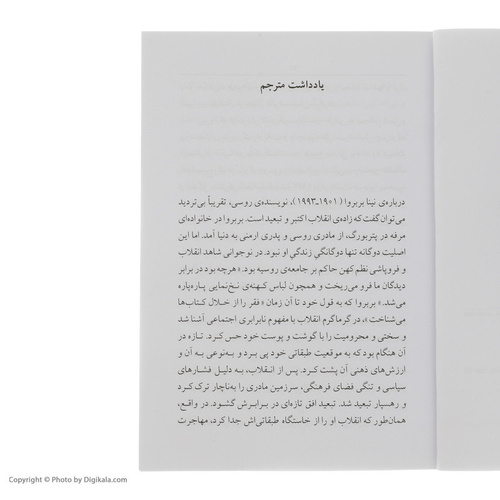 یادداشت مترجم
درباره‌ی نینا بربروا (۱۹۰۱ـ۱۹۹۳)، نویسنده‌ی روسی، تقریباً بی‌تردید
می‌توان گفت که زاده‌ی انقلاب اکتبر و تبعید است. بربروا در خانواده‌ای
مرفه در پتربورگ، از مادری روسی و پدری ارمنی به دنیا آمد. اما این
اصلیت دوگانه تنها دوگانگیِ زندگیِ او نبود. در نوجوانی شاهد انقلاب
و فروپاشی نظم کهن حاکم بر جامعه‌ی روسیه بود. «هرچه بود در برابر
دیدگان ما فرو می‌ریخت و همچون لباس کهنه‌ی نخ‌نمایی پاره‌پاره
می‌شد.» بربروا که به قول خود تا آن زمان «فقر را از خلال کتاب‌ها
می‌شناخت»، در گرماگرم انقلاب با مفهوم نابرابری اجتماعی آشنا شد
و سختی و محرومیت را با گوشت و پوست خود حس کرد. تازه در
آن هنگام بود که به موقعیت طبقاتی خود پی برد و به‌نوعی به آن و
ارزش‌های ذهنی آن پشت کرد. پس از انقلاب، به دلیل فشارهای
سیاسی و تنگی فضای فرهنگی، سرزمین مادری را به‌ناچار ترک کرد
و رهسپار تبعید شد. تبعید افق تازه‌ای در برابرش گشود. در واقع،
همان‌طور که انقلاب او را از خاستگاه طبقاتی‌اش جدا کرد، مهاجرت
Copyright © Photo by Digikala.com